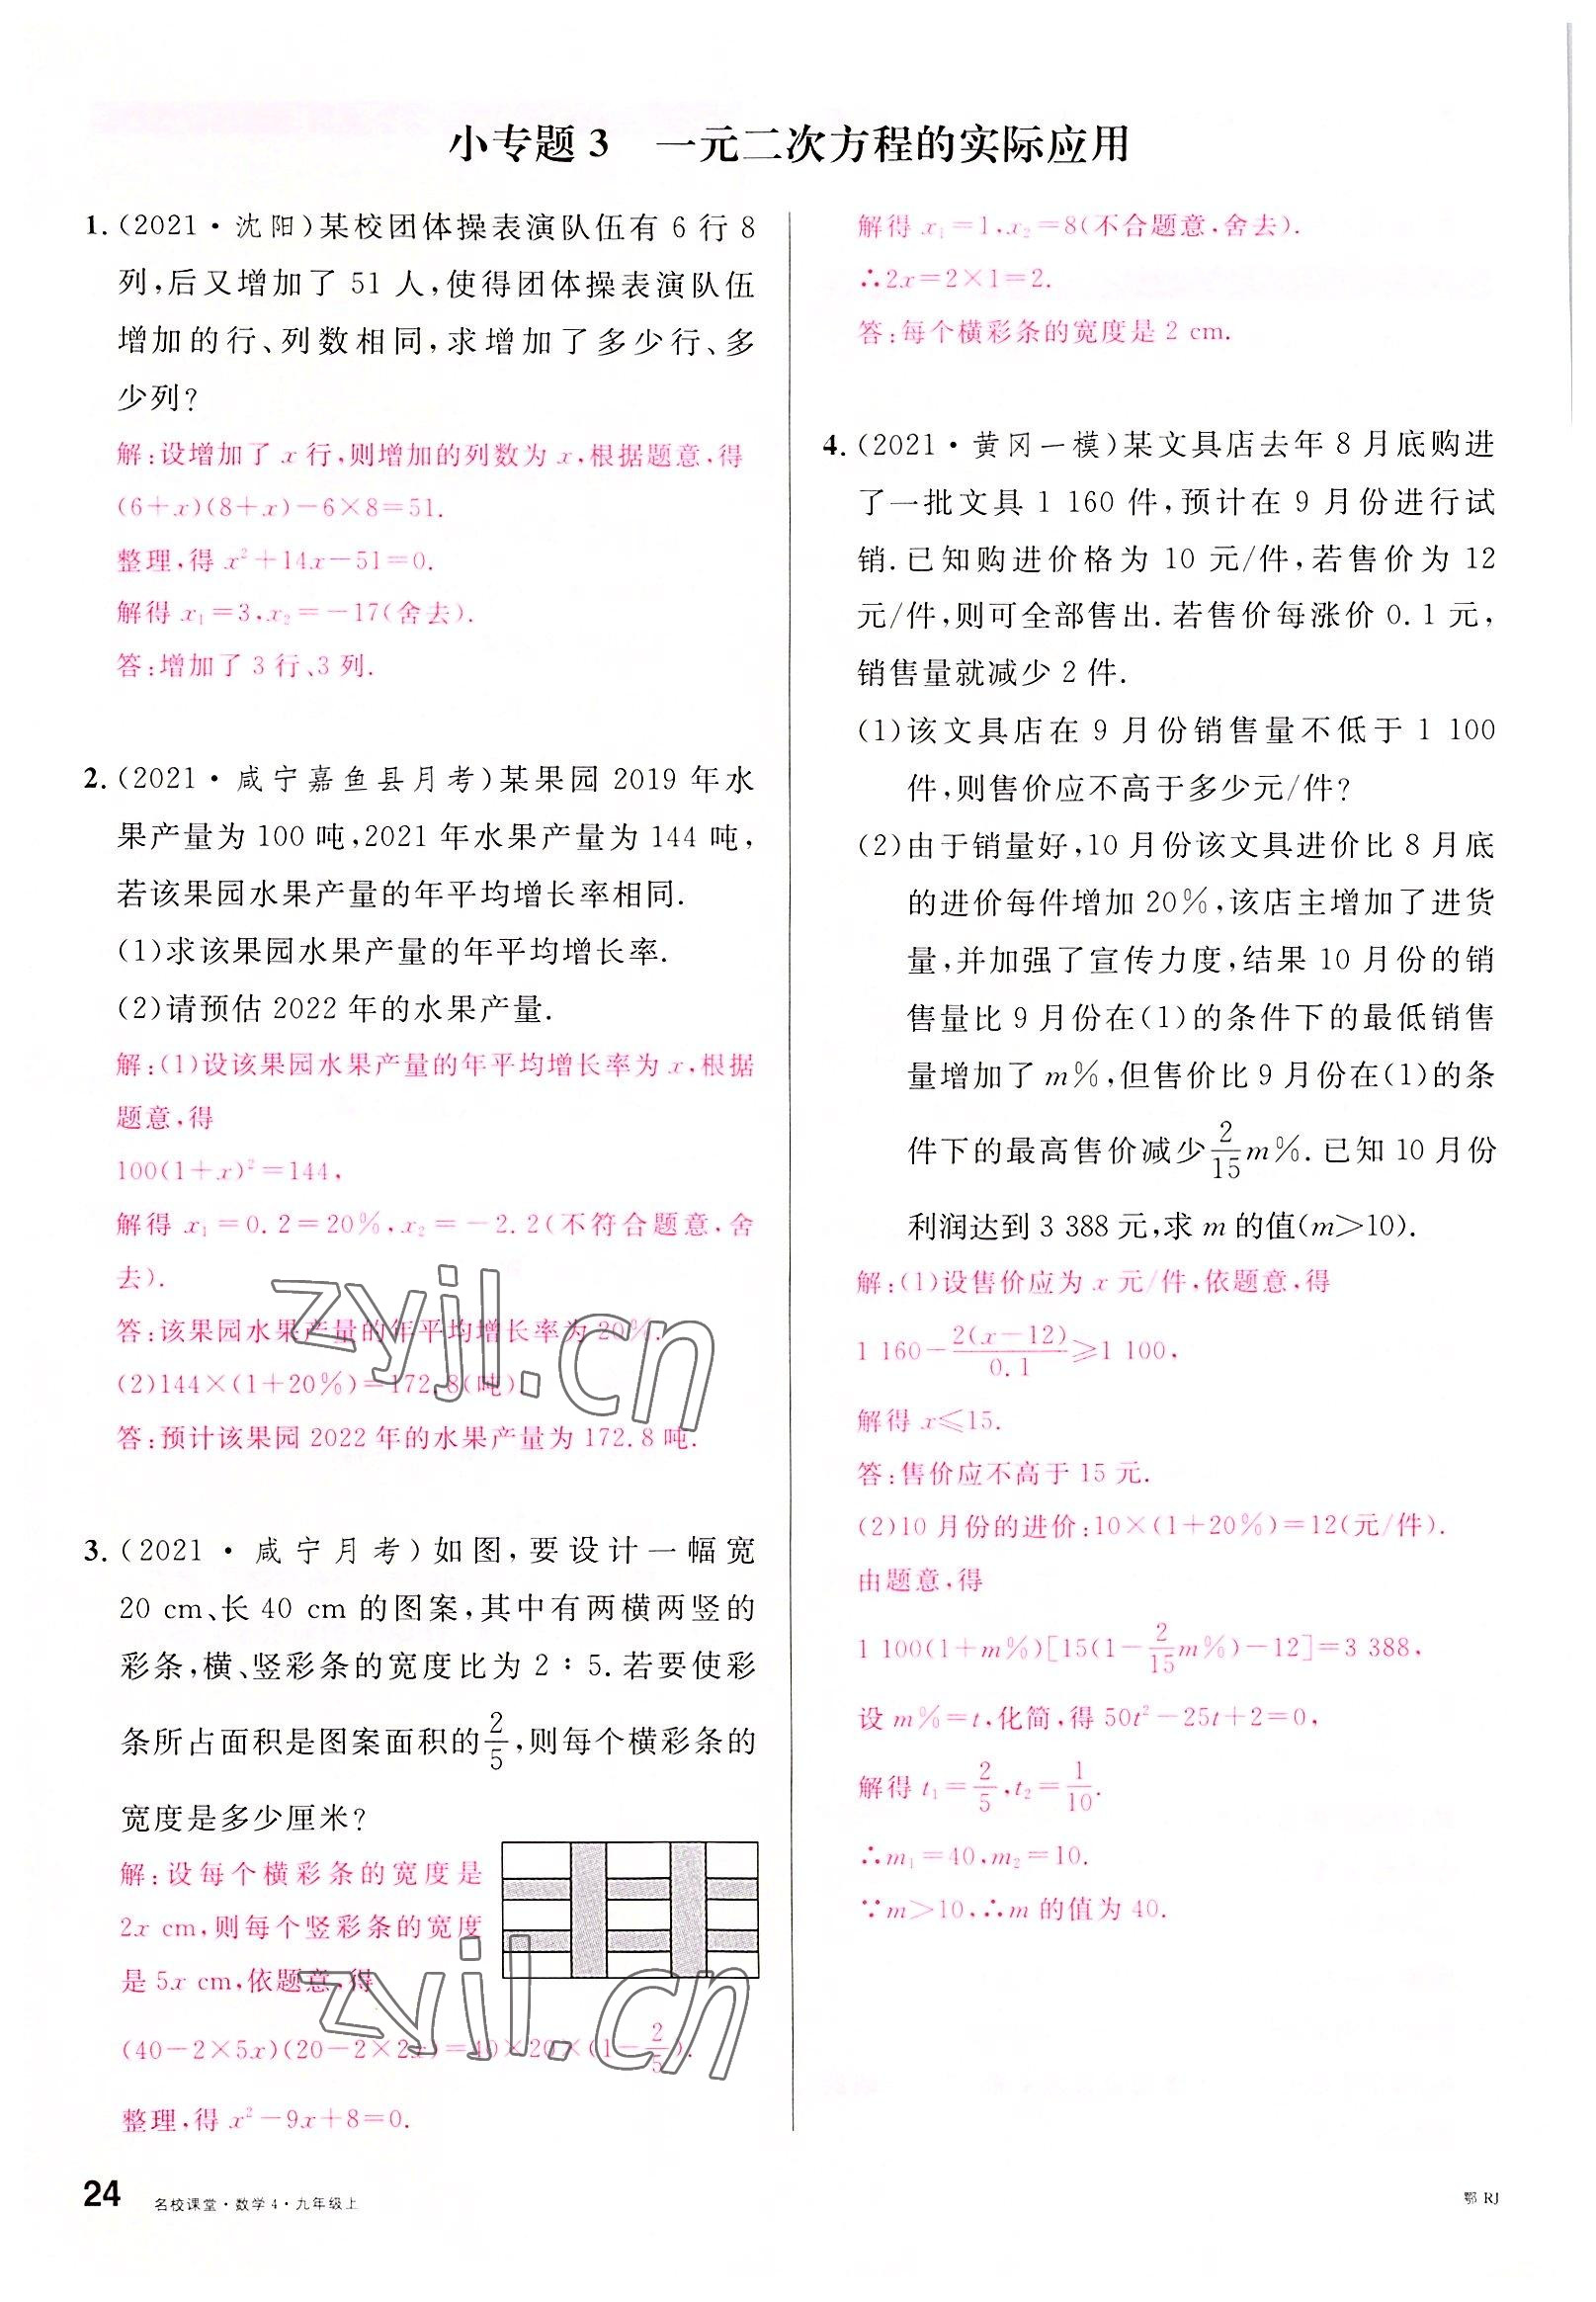 小专题3 一元二次方程的实际应用
1.(2021·沈阳)某校团体操表演队伍有6行8
列,后又增加了51人,使得团体操表演队伍
增加的行、列数相同,求增加了多少行、多
少列?
解:设增加了x行,则增加的列数为x,根据题意,得
(6+x)(8+x)-6×8=51.
整理,得x²+14x-51=0.
解得x₁=3,x₂=-17(舍去).
答:增加了3行、3列.
2.(2021·咸宁嘉鱼县月考)某果园2019年水
果产量为100吨,2021年水果产量为144吨,
若该果园水果产量的年平均增长率相同.
(1)求该果园水果产量的年平均增长率.
(2)请预估2022年的水果产量.
解:(1)设该果园水果产量的年平均增长率为x,根据
题意,得
100(1+x)²=144,
解得x₁=0.2=20%,x₂=-2.2(不符合题意,舍
去).
答:该果园水果产量的年平均增长率为20%.
(2)144×(1+20%)=172.8(吨)
答:预计该果园2022年的水果产量为172.8吨.
zyjl.cn
3.(2021·咸宁月考)如图,要设计一幅宽
20 cm、长40 cm的图案,其中有两横两竖的
彩条,横、竖彩条的宽度比为2∶5.若要使彩
条所占面积是图案面积的2/5,则每个横彩条的
宽度是多少厘米?
解:设每个横彩条的宽度是
2x cm,则每个竖彩条的宽度
是5x cm,依题意,得
(40-2×5x)(20-2×2x)=40×20×(1-2/5).
整理,得x²-9x+8=0.
zyjl.cn
解得x₁=1,x₂=8(不合题意,舍去).
∴2x=2×1=2.
答:每个横彩条的宽度是2 cm.
4.(2021·黄冈一模)某文具店去年8月底购进
了一批文具1 160件,预计在9月份进行试
销.已知购进价格为10元/件,若售价为12
元/件,则可全部售出.若售价每涨价0.1元,
销售量就减少2件.
(1)该文具店在9月份销售量不低于1 100
件,则售价应不高于多少元/件?
(2)由于销量好,10月份该文具进价比8月底
的进价每件增加20%,该店主增加了进货
量,并加强了宣传力度,结果10月份的销
售量比9月份在(1)的条件下的最低销售
量增加了m%,但售价比9月份在(1)的条
件下的最高售价减少2/15m%.已知10月份
利润达到3 388元,求m的值(m>10).
解:(1)设售价应为x元/件,依题意,得
1 160-2(x-12)/0.1≥1 100,
解得x≤15.
答:售价应不高于15元.
(2)10月份的进价:10×(1+20%)=12(元/件).
由题意,得
1 100(1+m%)[15(1-2/15m%)-12]=3 388,
设m%=t,化简,得50t²-25t+2=0,
解得t₁=2/5,t₂=1/10.
∴m₁=40,m₂=10.
∵m>10,∴m的值为40.
24 名校课堂·数学4·九年级上
鄂RJ